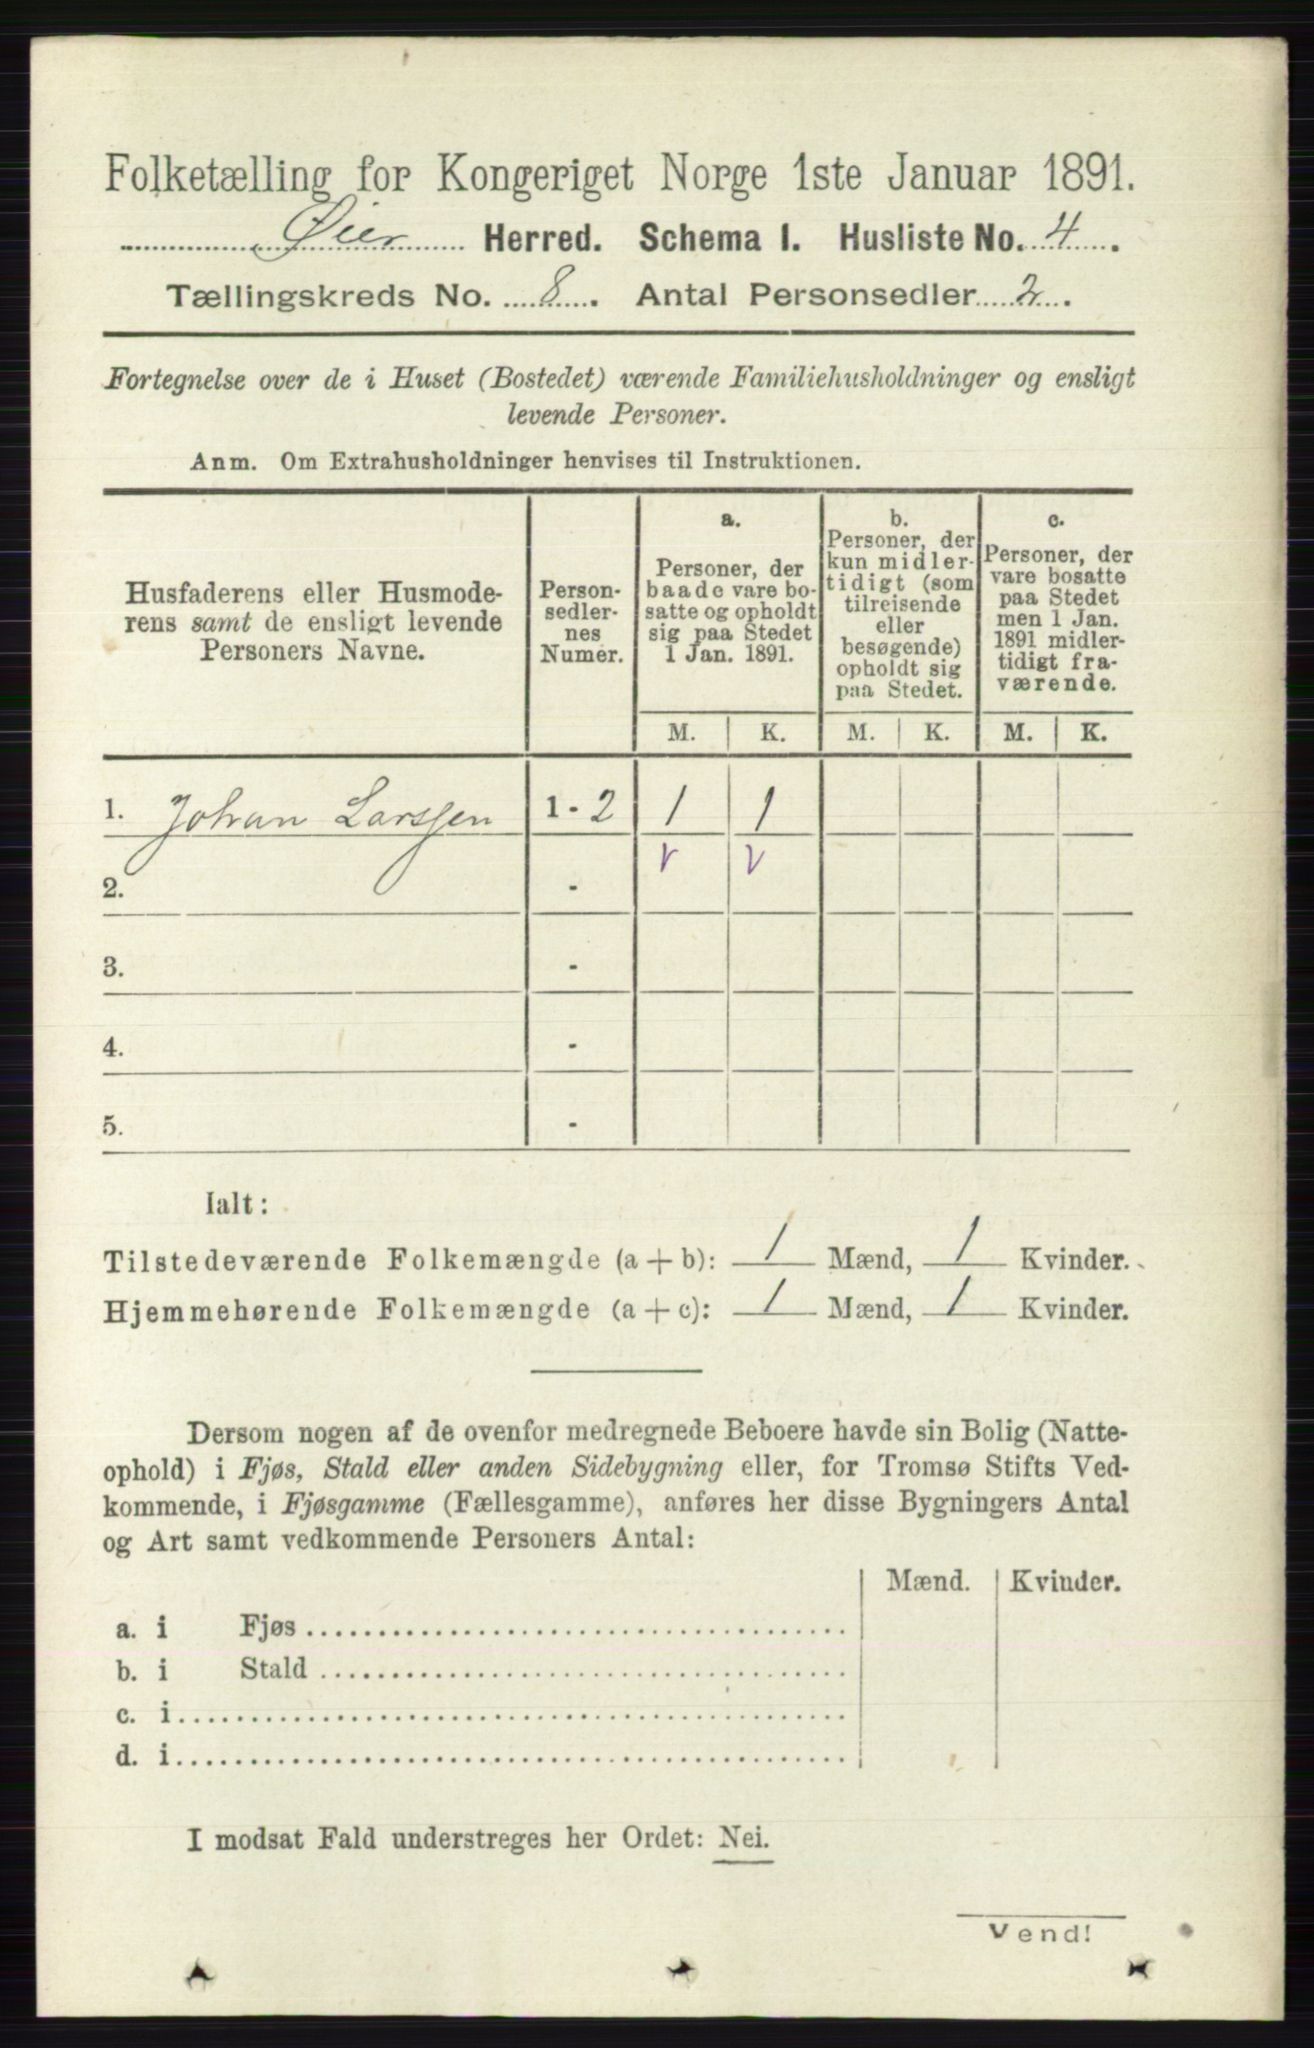 Folketælling for Kongeriget Norge 1ste Januar 1891.
Øier Herred. Schema I. Husliste No. 4.
Tællingskreds No. 8. Antal Personsedler 2.
Fortegnelse over de i Huset (Bostedet) værende Familiehusholdninger og ensligt
levende Personer.
Anm. Om Extrahusholdninger henvises til Instruktionen.
Husfaderens eller Husmode-
rens samt de ensligt levende
Personers Navne.
Person-
sedler-
nes
Numer.
a.
Personer, der
baade vare bo-
satte og opholdt
sig paa Stedet
1 Jan. 1891.
b.
Personer, der
kun midler-
tidigt (som
tilreisende
eller
besøgende)
opholdt sig
paa Stedet.
c.
Personer, der
vare bosatte
paa Stedet
men 1 Jan.
1891 midler-
tidigt fra-
værende.
M. K. M. K. M. K.
1. Johan Larssen 1 - 2 1 1
2. - v v
3. -
4. -
5. -
Ialt:
Tilstedeværende Folkemængde (a + b): 1 Mænd, 1 Kvinder.
Hjemmehørende Folkemængde (a + c): 1 Mænd, 1 Kvinder.
Dersom nogen af de ovenfor medregnede Beboere havde sin Bolig (Natte-
ophold) i Fjøs, Stald eller anden Sidebygning eller, for Tromsø Stifts Ved-
kommende, i Fjøsgamme (Fællesgamme), anføres her disse Bygningers Antal
og Art samt vedkommende Personers Antal:
Mænd. Kvinder.
a. i Fjøs
b. i Stald
c. i
d. i
I modsat Fald understreges her Ordet: Nei.
Vend!